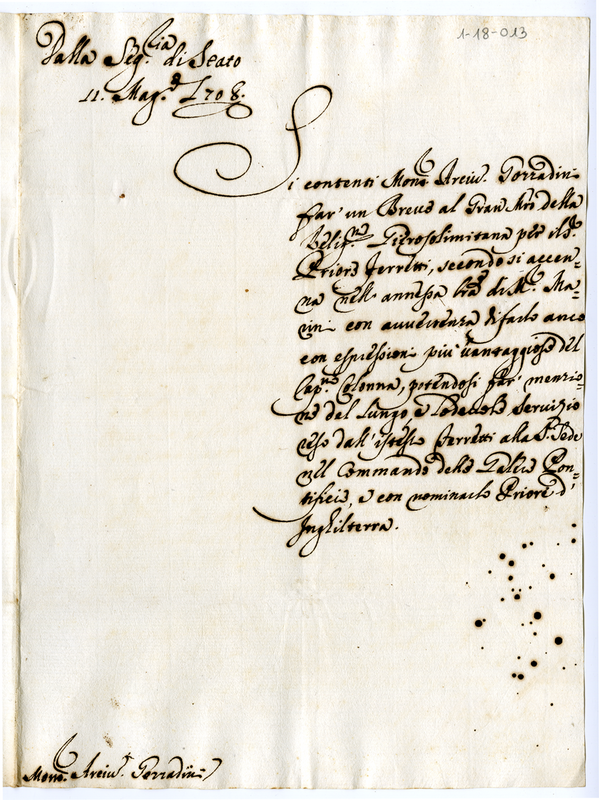 1-18-013
Dalla Seg.ria di Stato
11. Mag.o 1708.
Si contenti Mons. Arciv. Gozzadini
far' un Breve al Gran Mro della
Relig.ne Gierosolimitana per il S.
Priore Ferretti, secondo si accen=
na nell' annessa lra di M. Ma=
rini con avvertenza di farlo anco
con espressioni più vantaggiose del
Cap.no Colonna, potendosi far' menzio=
ne del lungo e lodevole servizio
reso dall' istesso Ferretti alla S. Sede
nel Commando delle Galere Pon=
tificie, e con nominarlo Priore d'
Inghilterra.
Mons. Arciv. Gozzadini